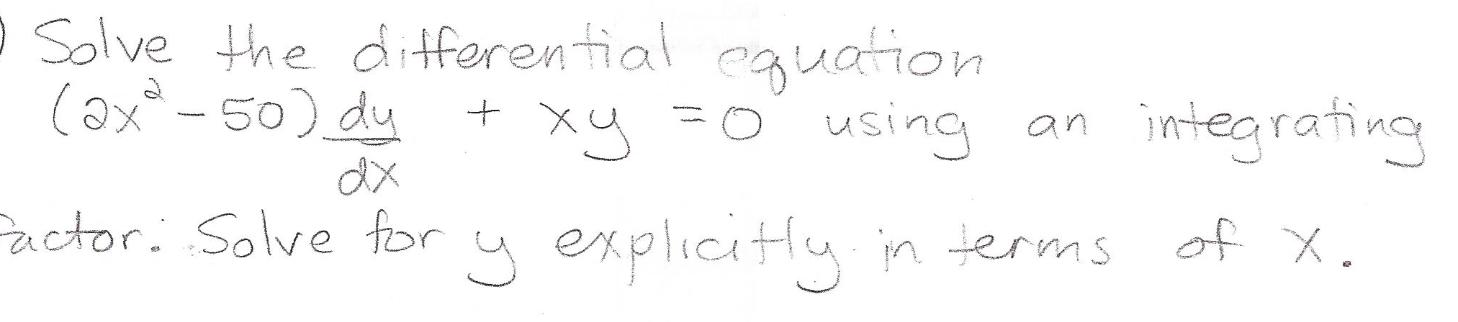 ) Solve the differential equation
(2x² - 50) dy/dx + xy = 0 using an integrating
factor. Solve for y explicitly in terms of x.